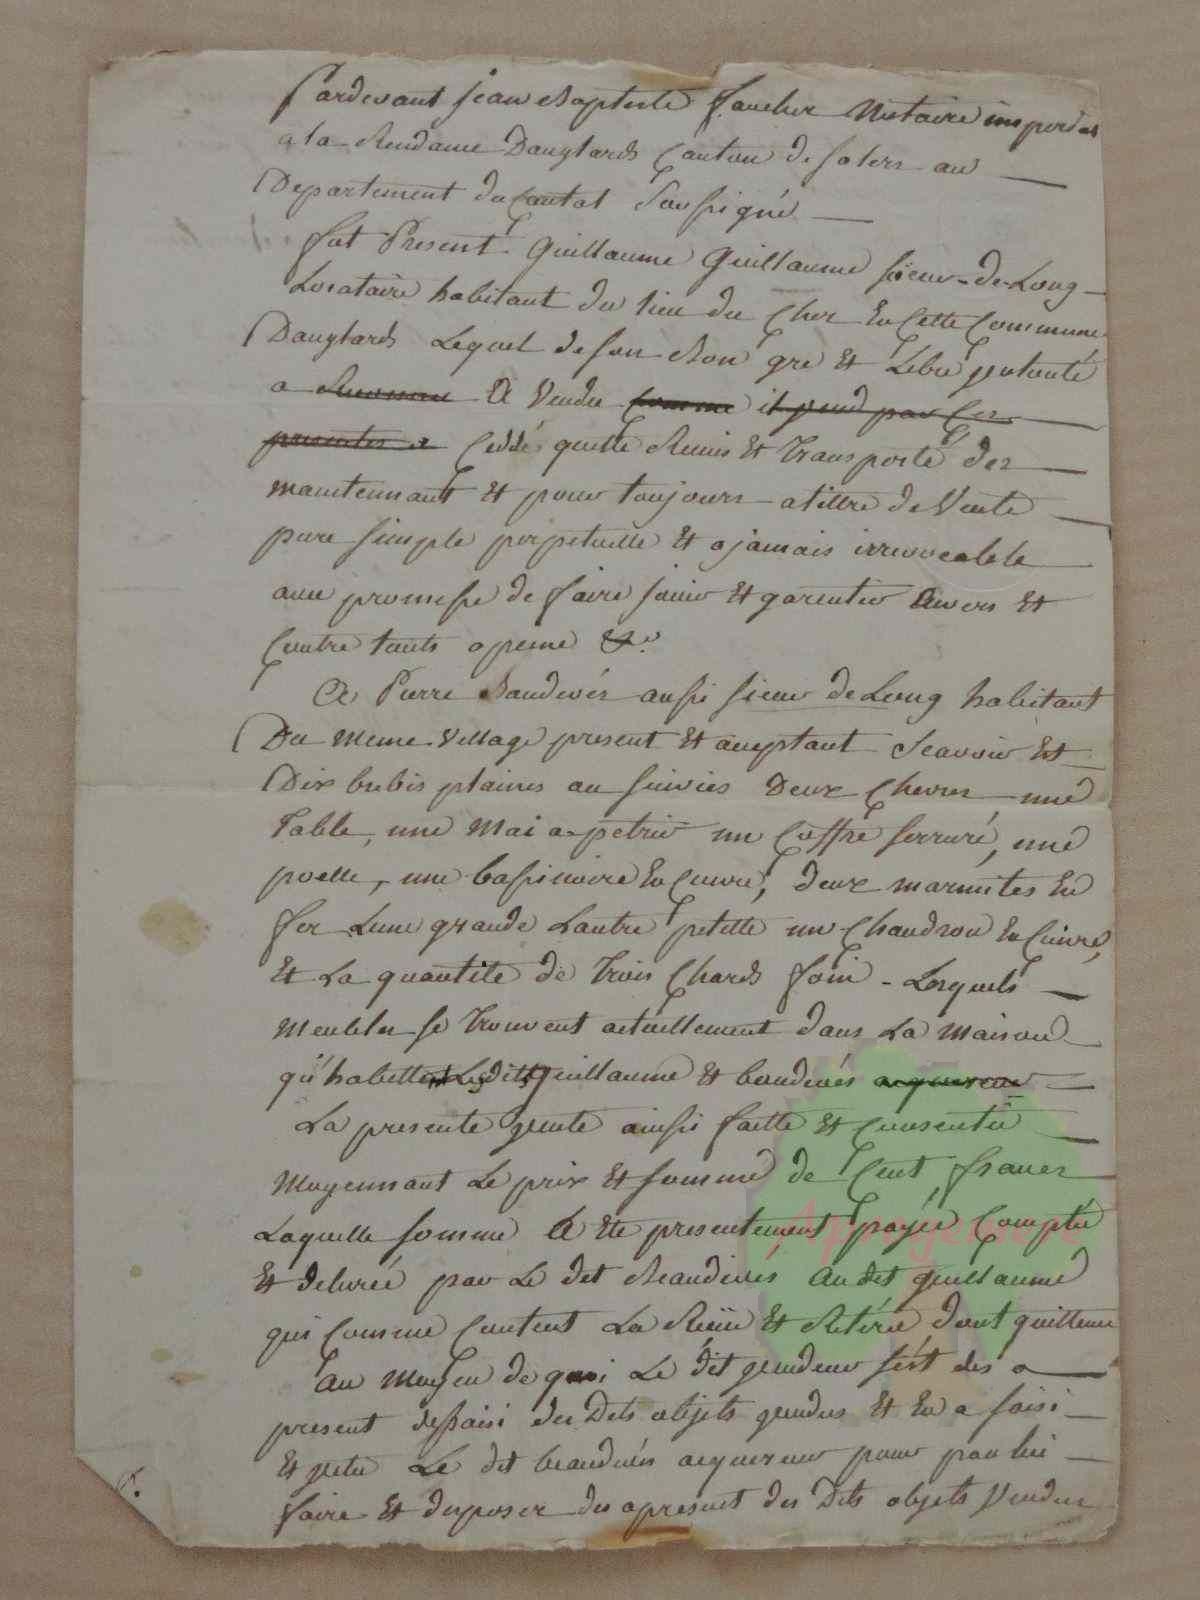 Pardevant Jean Baptiste faucher Notaire imperial
a la Residance Danglards Canton de Salers au
Departement du Cantal Soussigné
fut Present Guillaume Guillaume sieur de Long
Locataire habitant du lieu du Cher En Cette Commune
Danglards Lequel de son Bon gré Et Libre volonté
a A Vendu Comme il vend par Ces
presentes a Ceddé quitté Remis Et transporté des
maintennant Et pour toujours atittre de Vente
pure simple perpetuelle Et ajamais irrevocable
avec promesse de faire jouir Et garentir Envers Et
Contre touts apeine &.
A Pierre Baudivés aussi sieur de Long habitant
Du meme Village present Et aceptant Scavoir Est
Dix brebis plaines ou suivies Deux Chevres une
Table, une Mai a petrir un Coffre serruré, une
poelle, une bassinoire En Cuivre, deux marmites En
fer Lune grande Lautre petitte un Chaudron En Cuivre,
Et La quantité de Trois Chards foin - Lesquels
Meubles se Trouvent actuellement dans La Maison
qu'habittent Lesdits Guillaume Et baudivés aquereur
La presente vente ainsi faitte Et Consentie
Moyennant Le prix Et somme de Cent francs
Laquelle somme A Eté presentement payée Comptée
Et delivrée par Le dit Beaudivés Au dit guillaume
qui Comme Content La Reçue Et Retirée dont quittance
Au Moyen de quoi Le dit vendeur s'est des a
present dessaisi des Dits objets vendus Et En a saisi
Et vetu Le dit beaudivés aquereur pour par lui
faire Et disposer des apresent des Dits objets Vendus
Appogensere